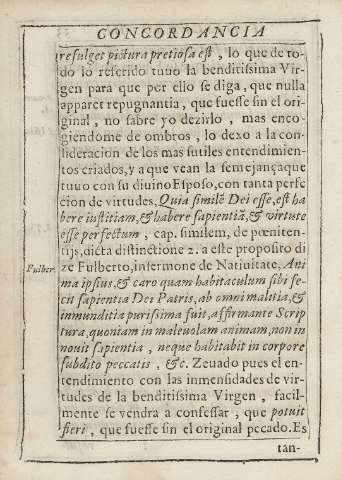 CONCORDANCIA
resulget pictura pretiosa est, lo que de to-
do lo referido tuuo la benditissima Vir-
gen para que per ello se diga, que nulla
apparet repugnantia, que fuesse sin el ori-
ginal, no sabre yo dezirlo, mas enco-
giendome de ombros, lo dexo a la con-
sideracion de los mas sutiles entendimien-
tos criados, y a que vean la semejança que
tuuo con su diuino Esposo, con tanta perfe-
cion de virtudes, Quia similẽ Dei esse, est ha
bere iustitiam, & habere sapientiã, & virtute
esse perfectum, cap. similem, de pœniten-
tijs, dicta distinctione 2. a este proposito di
Fulber. ze Fulberto, in sermone de Natiuitate, Ani
ma ipsus, & caro quam habitaculum sibi fe-
cit sapientia Dei Patris, ab omni malitia, &
inmunditia purissima fuit, affirmante Scrip
tura, quoniam in maleuolam animam, non in
nouit sapientia, neque habitabit in corpore
subdito peccatis, &c. Zeuado pues el en-
tendimiento con las inmensidades de vir-
tudes de la benditissima Virgen, facil-
mente se vendra a confessar, que potuit
fieri, que fuesse sin el original pecado. Es
tan-